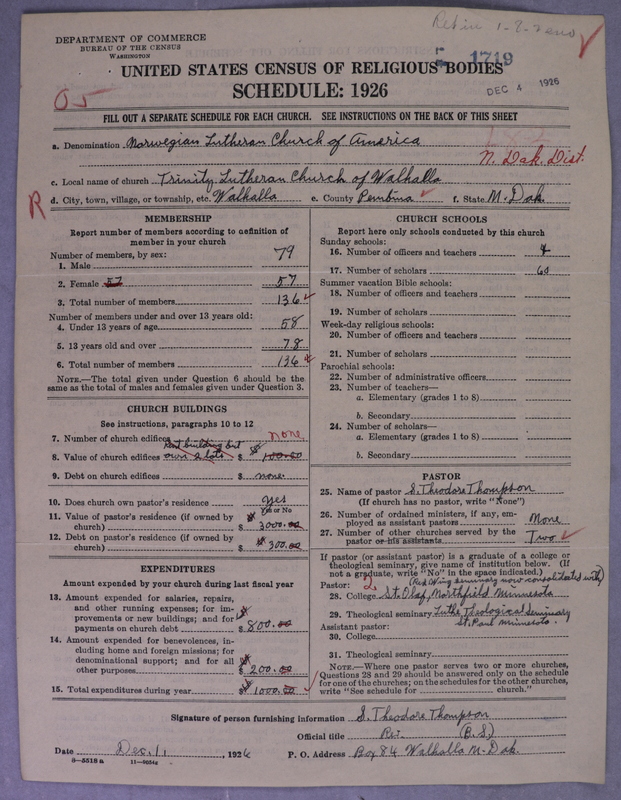 Retire 1-8-
DEPARTMENT OF COMMERCE
BUREAU OF THE CENSUS
WASHINGTON
1719
DEC 4 1926
UNITED STATES CENSUS OF RELIGIOUS BODIES
SCHEDULE: 1926
05
FILL OUT A SEPARATE SCHEDULE FOR EACH CHURCH. SEE INSTRUCTIONS ON THE BACK OF THIS SHEET
a. Denomination Norwegian Lutheran Church of America
N. Dak. Dist.
c. Local name of church Trinity Lutheran Church of Walhalla
R
d. City, town, village, or township, etc. Walhalla e. County Pembina f. State N. Dak.
MEMBERSHIP
Report number of members according to definition of
member in your church
Number of members, by sex:
1. Male 79
2. Female 57 57
3. Total number of members 136
Number of members under and over 13 years old:
4. Under 13 years of age 58
5. 13 years old and over 78
6. Total number of members 136
NOTE.—The total given under Question 6 should be the
same as the total of males and females given under Question 3.
CHURCH BUILDINGS
See instructions, paragraphs 10 to 12
7. Number of church edifices none
Rent building but
8. Value of church edifices own 2 lots $ 100.00
9. Debt on church edifices $ none
10. Does church own pastor's residence yes
Yes or No
11. Value of pastor's residence (if owned by
church) $ 3000.00
12. Debt on pastor's residence (if owned by
church) $ 300.00
EXPENDITURES
Amount expended by your church during last fiscal year
13. Amount expended for salaries, repairs,
and other running expenses; for im-
provements or new buildings; and for
payments on church debt $ 800.00
14. Amount expended for benevolences, in-
cluding home and foreign missions; for
denominational support; and for all
other purposes $ 200.00
15. Total expenditures during year $ 1000.00
CHURCH SCHOOLS
Report here only schools conducted by this church
Sunday schools:
16. Number of officers and teachers 4
17. Number of scholars 60
Summer vacation Bible schools:
18. Number of officers and teachers
19. Number of scholars
Week-day religious schools:
20. Number of officers and teachers
21. Number of scholars
Parochial schools:
22. Number of administrative officers
23. Number of teachers—
a. Elementary (grades 1 to 8)
b. Secondary
24. Number of scholars—
a. Elementary (grades 1 to 8)
b. Secondary
PASTOR
25. Name of pastor S. Theodore Thompson
(If church has no pastor, write "None")
26. Number of ordained ministers, if any, em-
ployed as assistant pastors None
27. Number of other churches served by the
pastor or his assistants Two
If pastor (or assistant pastor) is a graduate of a college or
theological seminary, give name of institution below. (If
not a graduate, write "No" in the space indicated.)
Pastor: 2 (Red Wing seminary now consolidated with)
28. College St. Olaf, Northfield Minnesota
29. Theological seminary Luth. Theological Seminary
St. Paul Minnesota.
Assistant pastor:
30. College
31. Theological seminary
NOTE.—Where one pastor serves two or more churches,
Questions 28 and 29 should be answered only on the schedule
for one of the churches; on the schedules for the other churches,
write "See schedule for church."
Signature of person furnishing information S. Theodore Thompson
Official title Rev. (B.S.)
Date Dec. 1, 1926 P. O. Address Box 84 Walhalla N. Dak.
8—5518 a 11—9054a